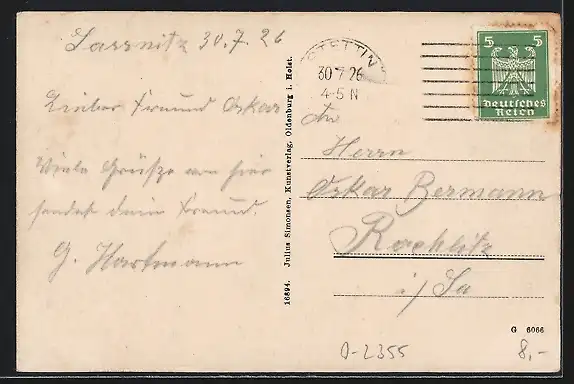 Sassnitz 30.7.26
Lieber Freund Oskar
Viele Grüße von hier
sendet dein Freund.
G. Hartmann
16894. Julius Simonsen, Kunstverlag, Oldenburg i. Holst.
STETTIN
30 7 26
4-5 N
5 5
Deutsches
Reich
An
Herrn
Oskar Bermann
Rochlitz
i/Sa
G 6066
0-2355
8,-